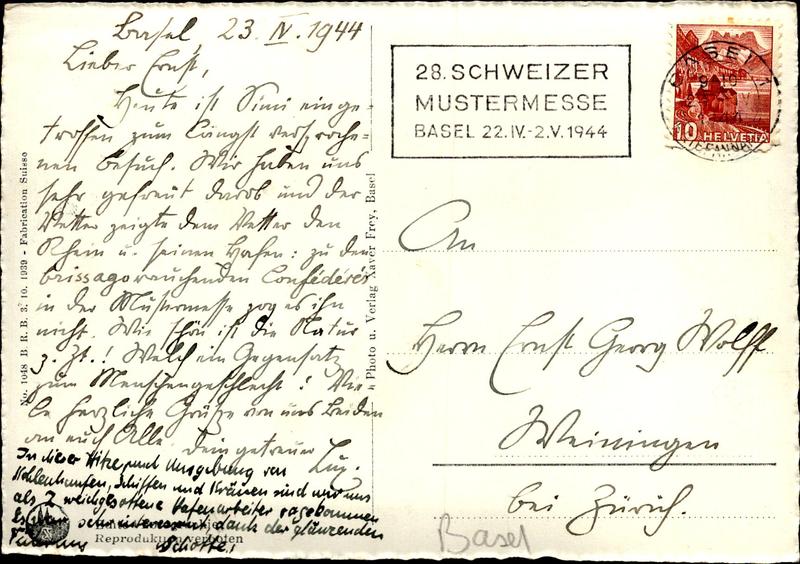 Basel, 23. IV. 1944
Lieber Ernst,
Heute ist Simi einge-
troffen zum längst versproche-
nen Besuch. Wir haben uns
sehr gefreut darob und der
Vetter zeigte dem Vetter den
Rhein u. seinen Hafen: zu den
brissagorauchenden Confédérés
in der Mustermesse zog es ihn
nicht. Wie schön ist die Natur
z. Zt.! Welch ein Gegensatz
zum Menschengeschlecht! Vie-
le herzliche Grüsse von uns Beiden
an euch Alle. Dein getreuer
In dieser Hitze und Umgebung von
Kohlenhaufen, Schiffen und Kränen sind wir uns
als 2 weichgesottene Hafenarbeiter vorgekommen
sehr interessant dank der glänzenden
No. 1048 B. R. B. 3. 10. 1939 - Fabrication Suisse
Photo u. Verlag Xaver Frey, Basel
Reproduktion verboten
28. SCHWEIZER
MUSTERMESSE
BASEL 22.IV.-2.V.1944
BASEL 1
10 HELVETIA
An
Herrn Ernst Georg Wolff
Weiningen
bei Zürich.
Basel